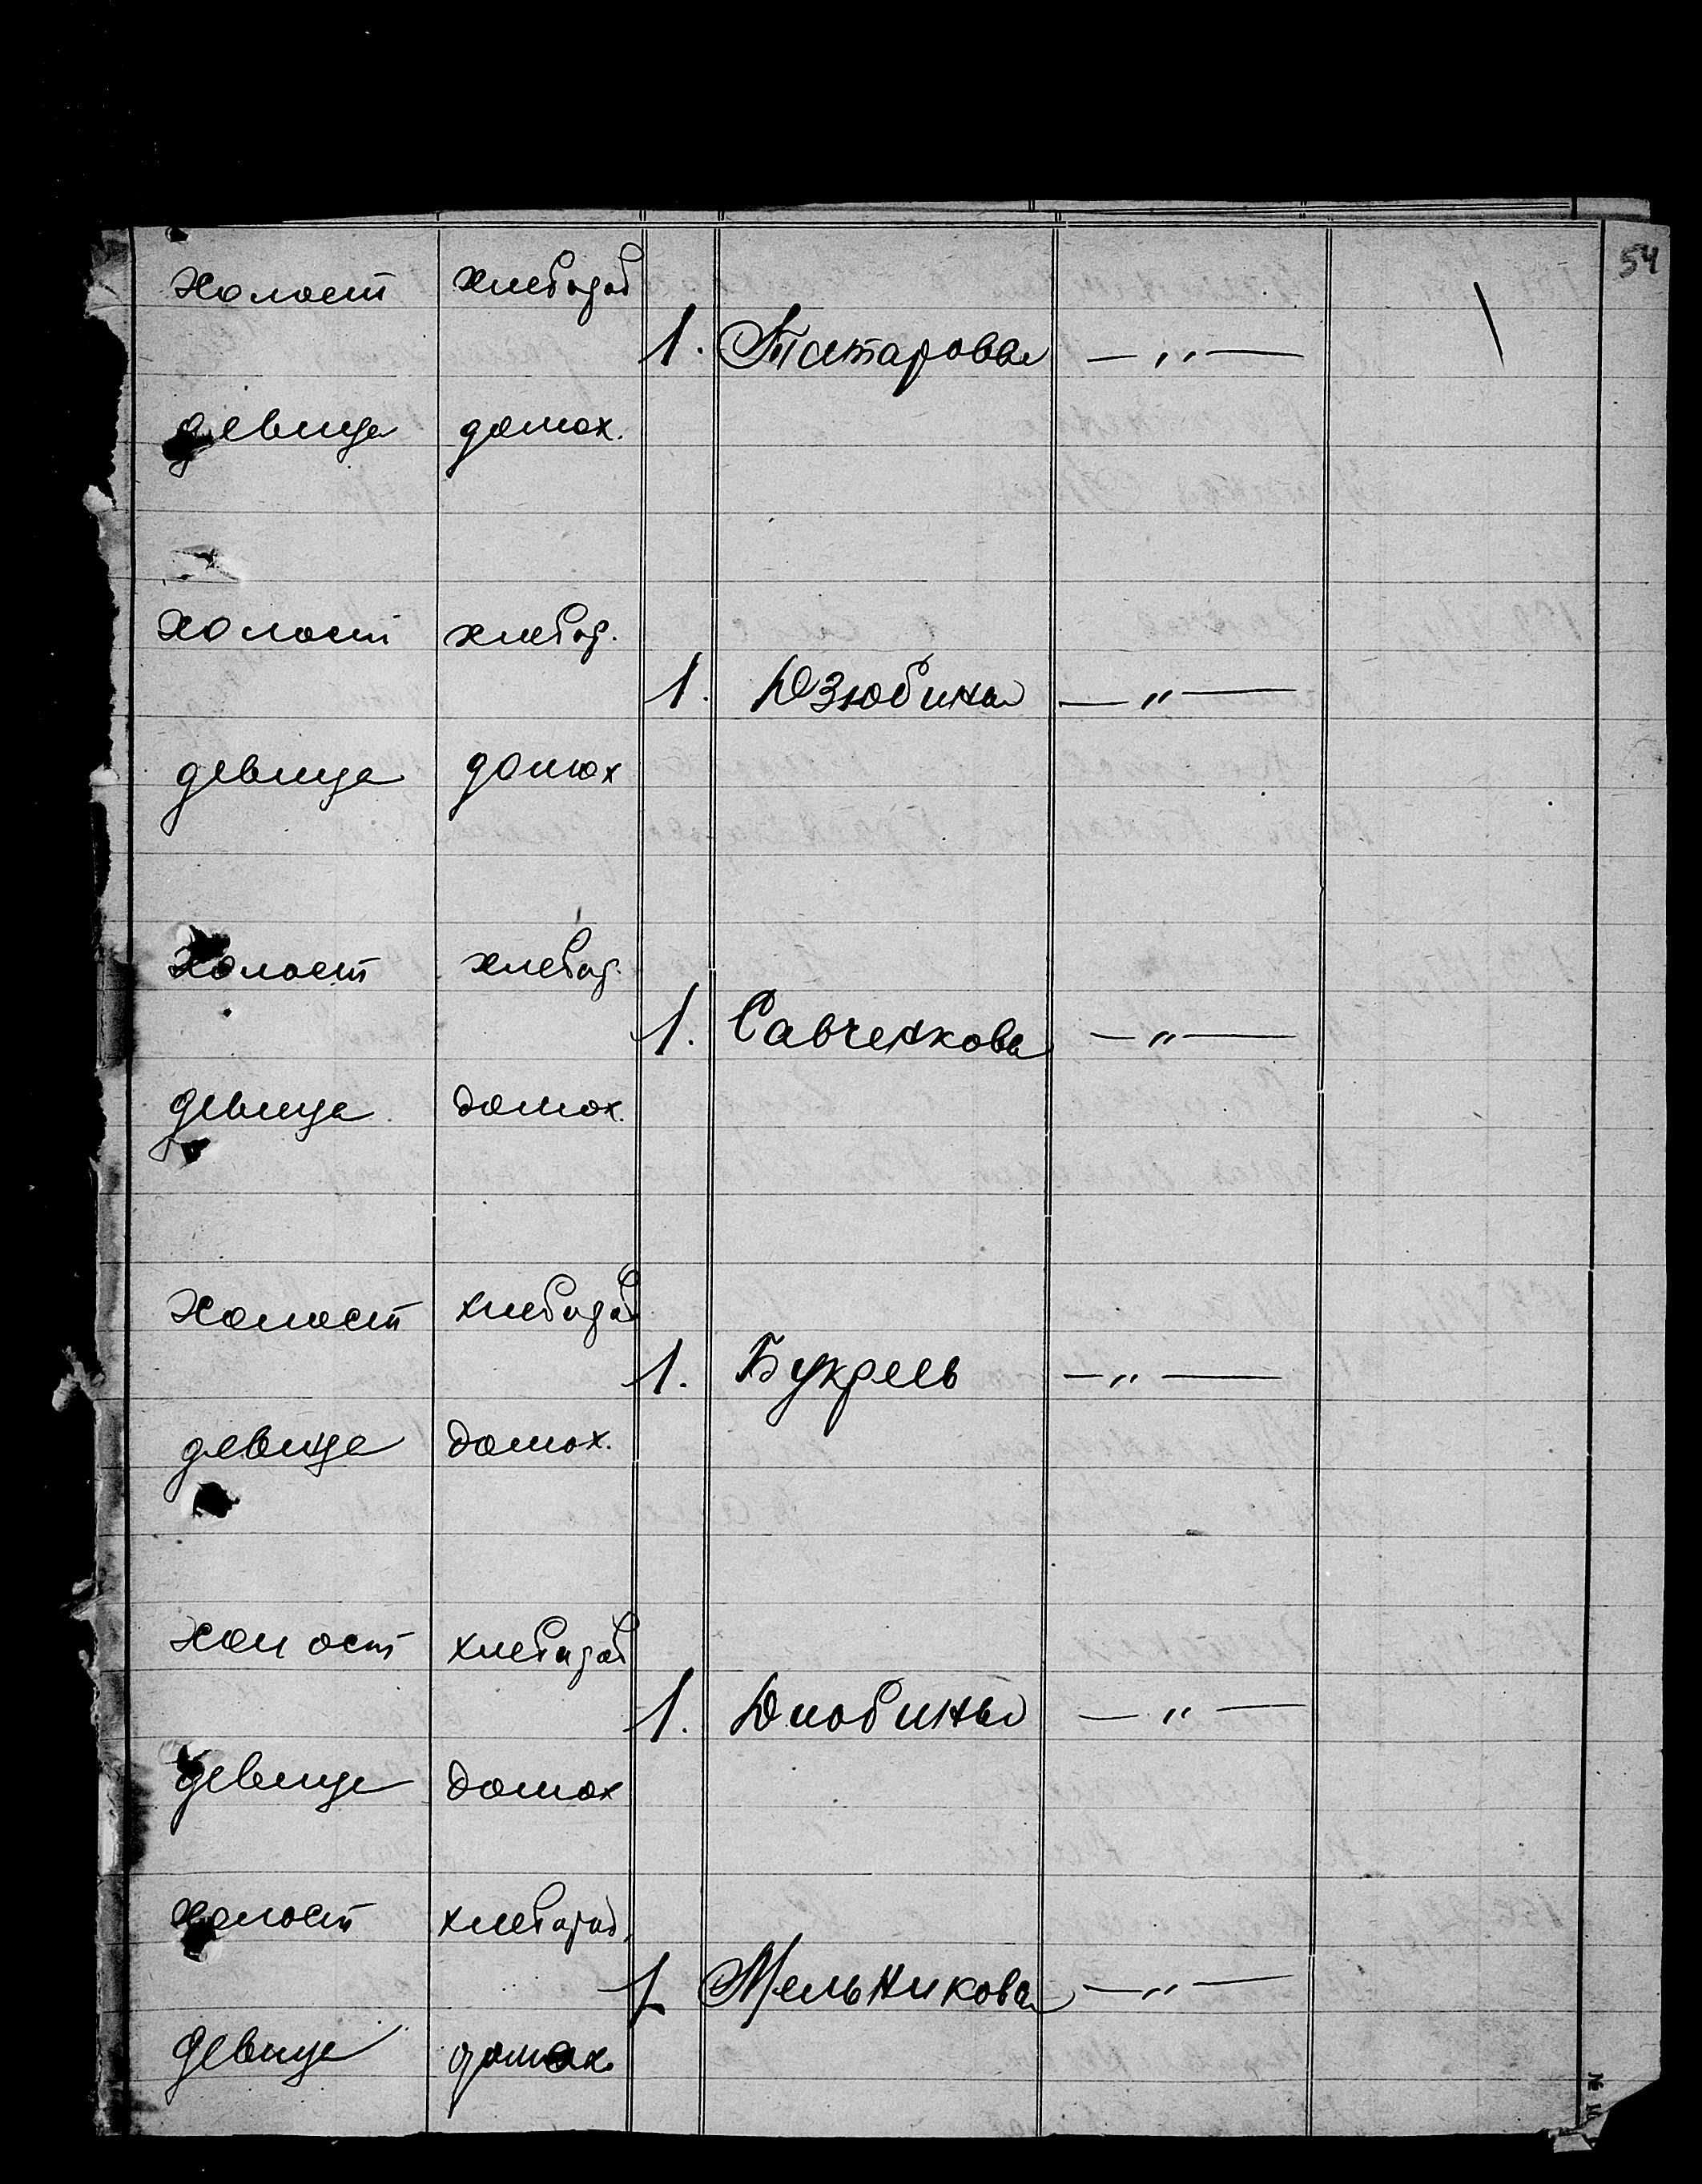 54
холост хлебороб
1. Татаровы —„—
девица домох.
холост хлебор.
1. Дзюбины —„—
девица домох
холост хлебор.
1. Савченкова —„—
девица домох.
холост хлебороб
1. Букреев —„—
девица домох.
холост хлебороб
1. —„—
девица домох
холост хлебороб.
1. Мельникова —„—
девица домох.